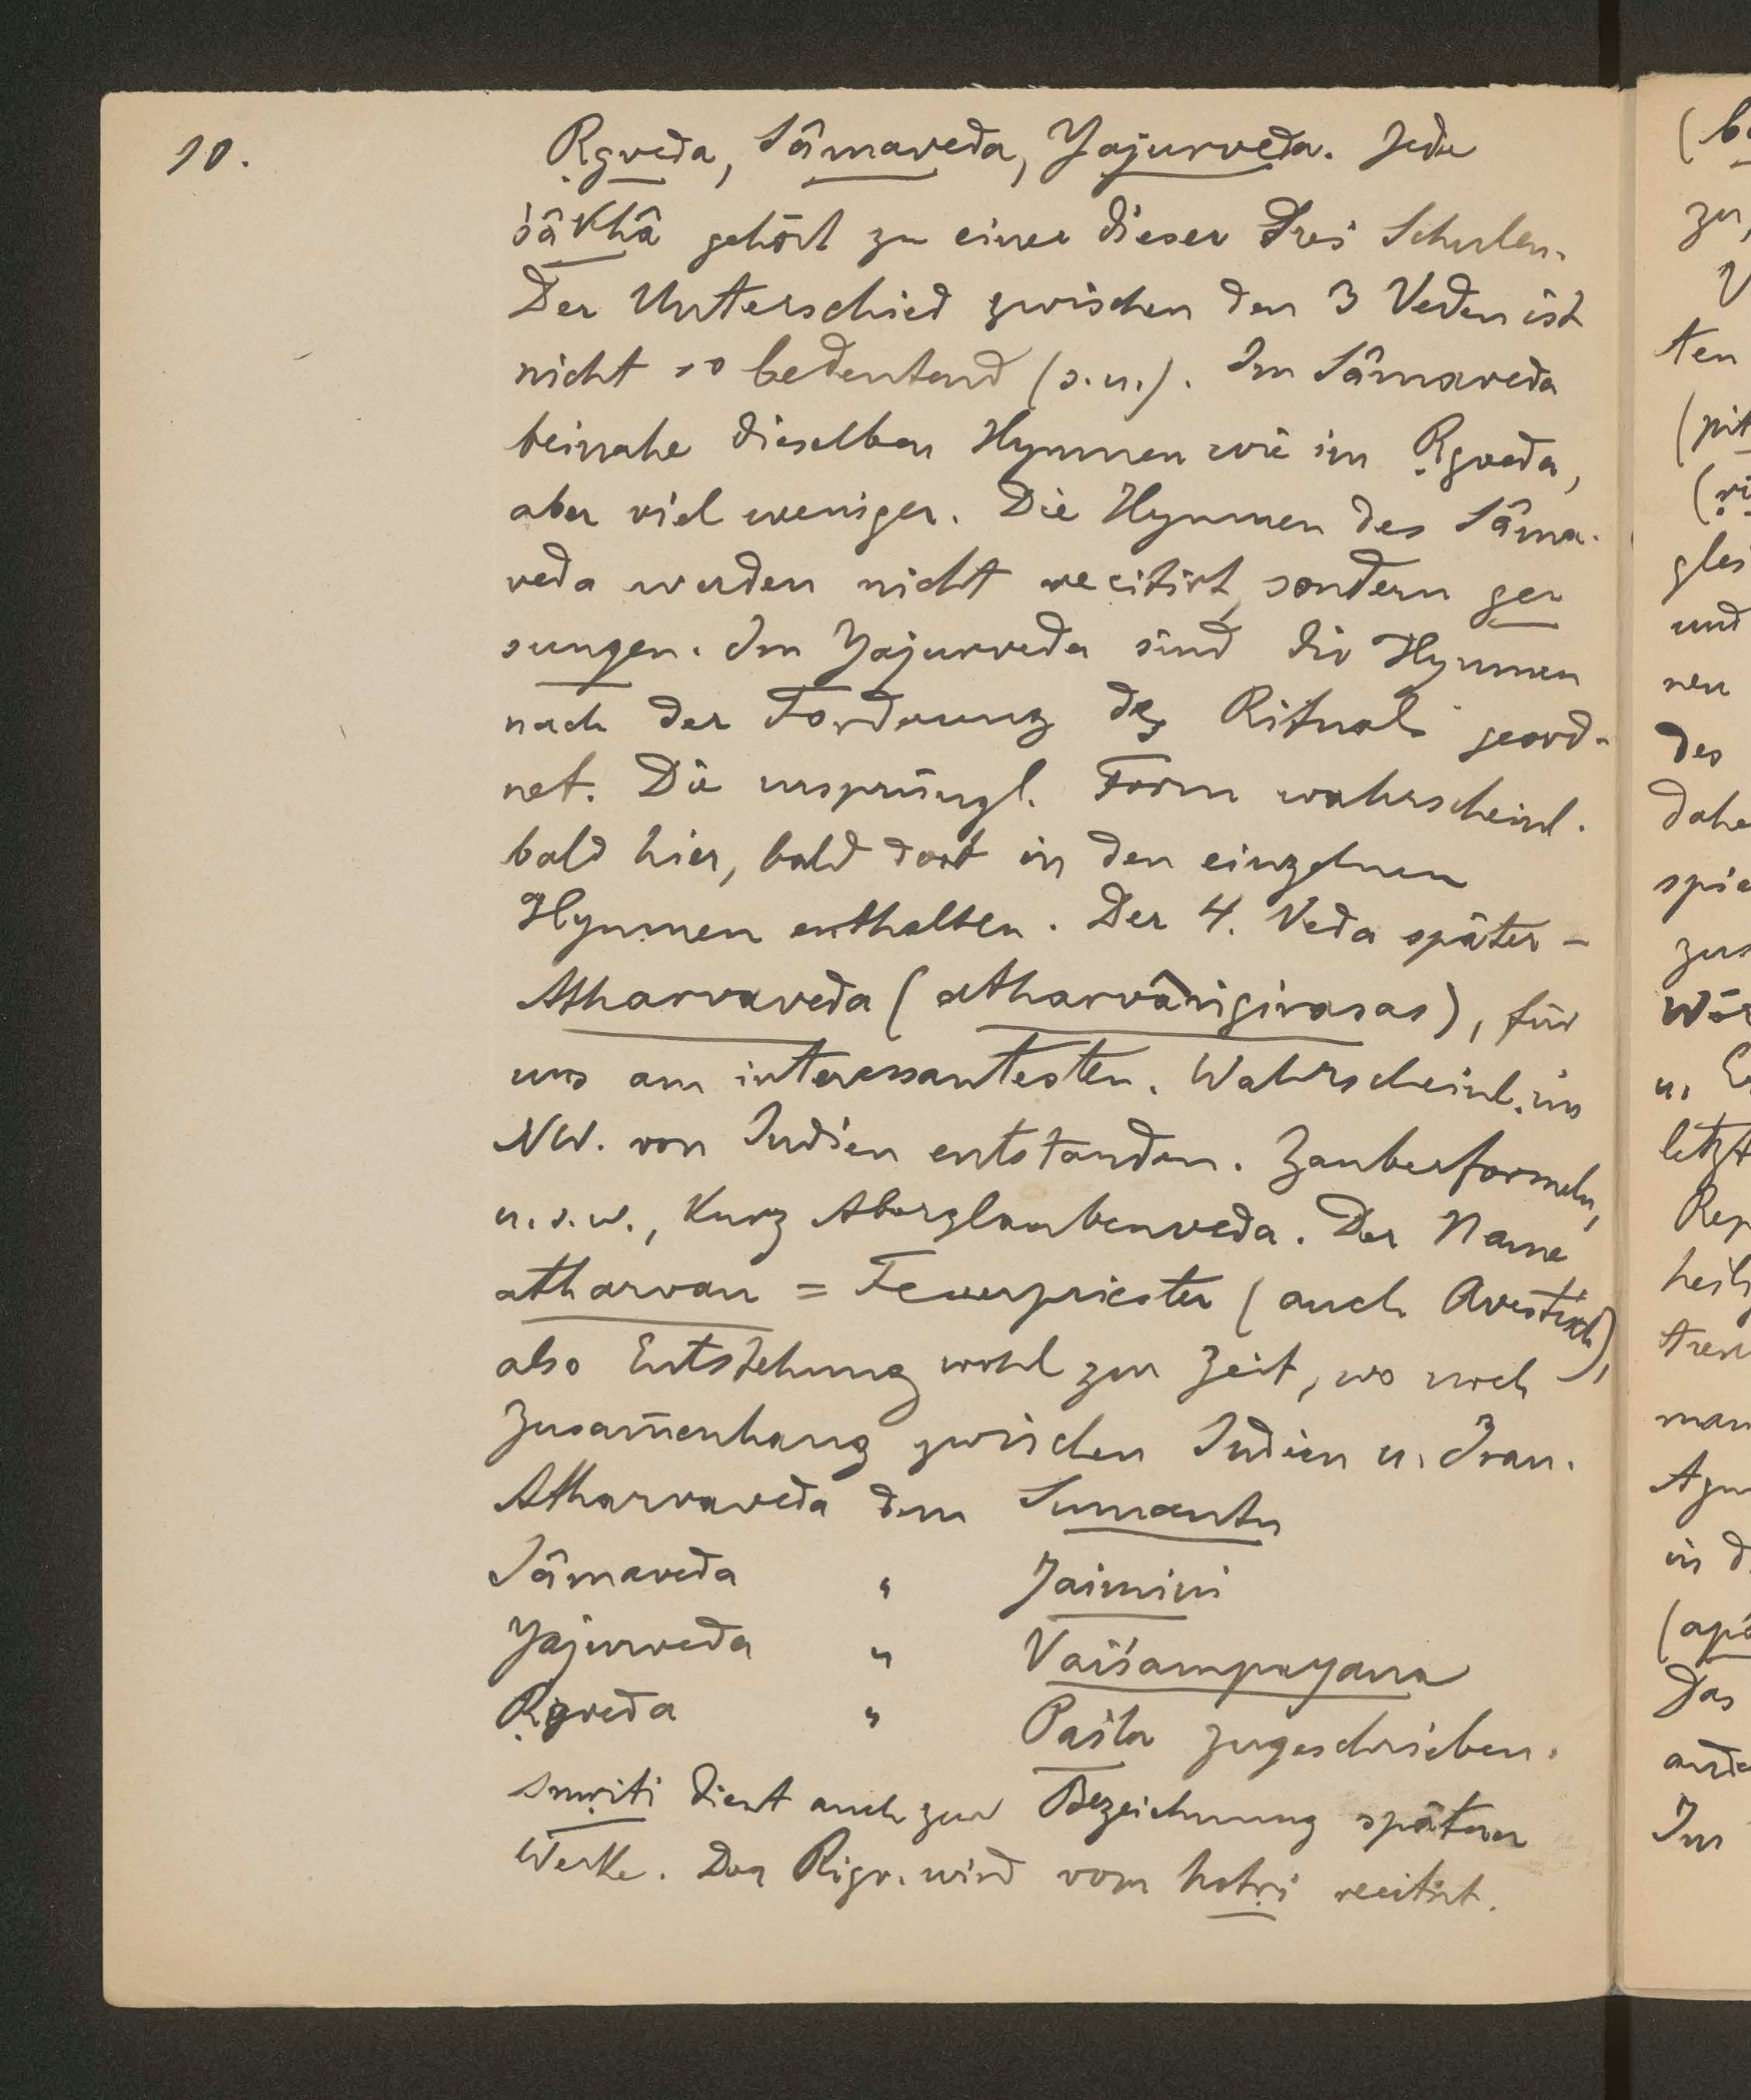 10.
Ṛgveda, Sâmaveda, Yajurveda. Jede
śâkhâ gehört zu einer dieser drei Schulen.
Der Unterschied zwischen den 3 Veden ist
nicht so bedeutend (s.u.). Im Sâmaveda
beinahe dieselben Hymnen wie im Ṛgveda,
aber viel weniger. Die Hymnen des Sâma-
veda werden nicht recitirt, sondern ge-
sungen. Im Yajurveda sind die Hymnen
nach der Forderung des Rituals geord-
net. Die ursprüngl. Form wahrscheinl.
bald hier, bald dort in den einzelnen
Hymnen enthalten. Der 4. Veda später –
Atharvaveda (atharvângirasas), für
uns am interessantesten. Wahrscheinl. im
NW. von Indien entstanden. Zauberformeln,
u.s.w., kurz Aberglaubenveda. Der Name
atharvan = Feuerpriester (auch Avestisch),
also Entstehung wohl zur Zeit, wo noch
Zusam̅enhang zwischen Indien u. Iran.
Atharvaveda dem Sumantu
Sâmaveda " Jaimini
Yajurveda " Vaiśampayana
Ṛigveda " Paila zugeschrieben.
smṛiti dient auch zur Bezeichnung späterer
Werke. Der Rigv. wird vom hotṛi recitirt.
(b
zu,
V
ten
(pit
(ṛi
gles
und
ren
des
dahe
spie
zus
Wör
u. E
letzt
Rep
heil
tren
man
Agn
in d
(apa
Das
ande
Im